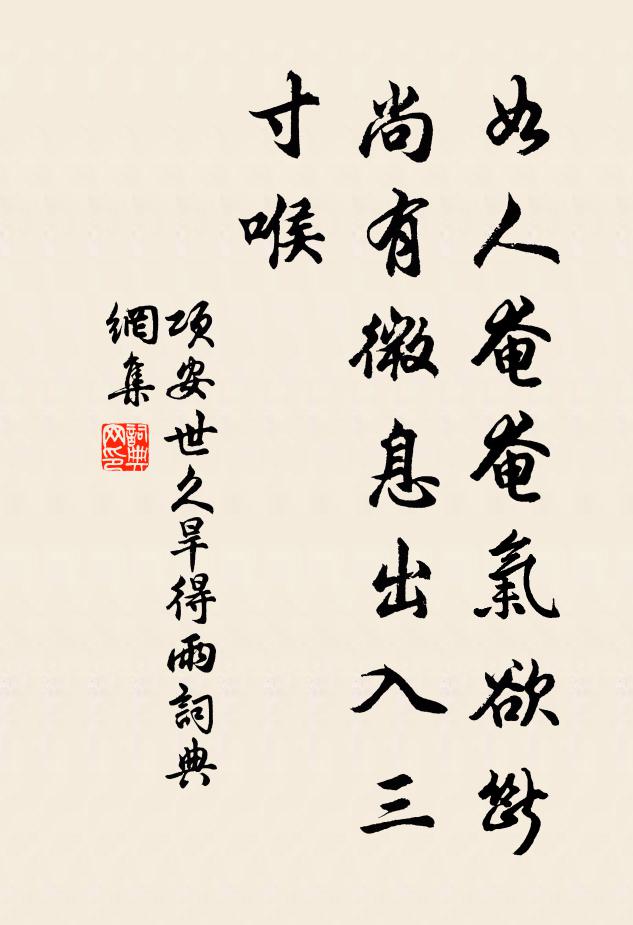 如人奄奄氣欲斷
尚有微息出入三
寸喉
項安世久旱得雨詞典
網集
詞典
网印